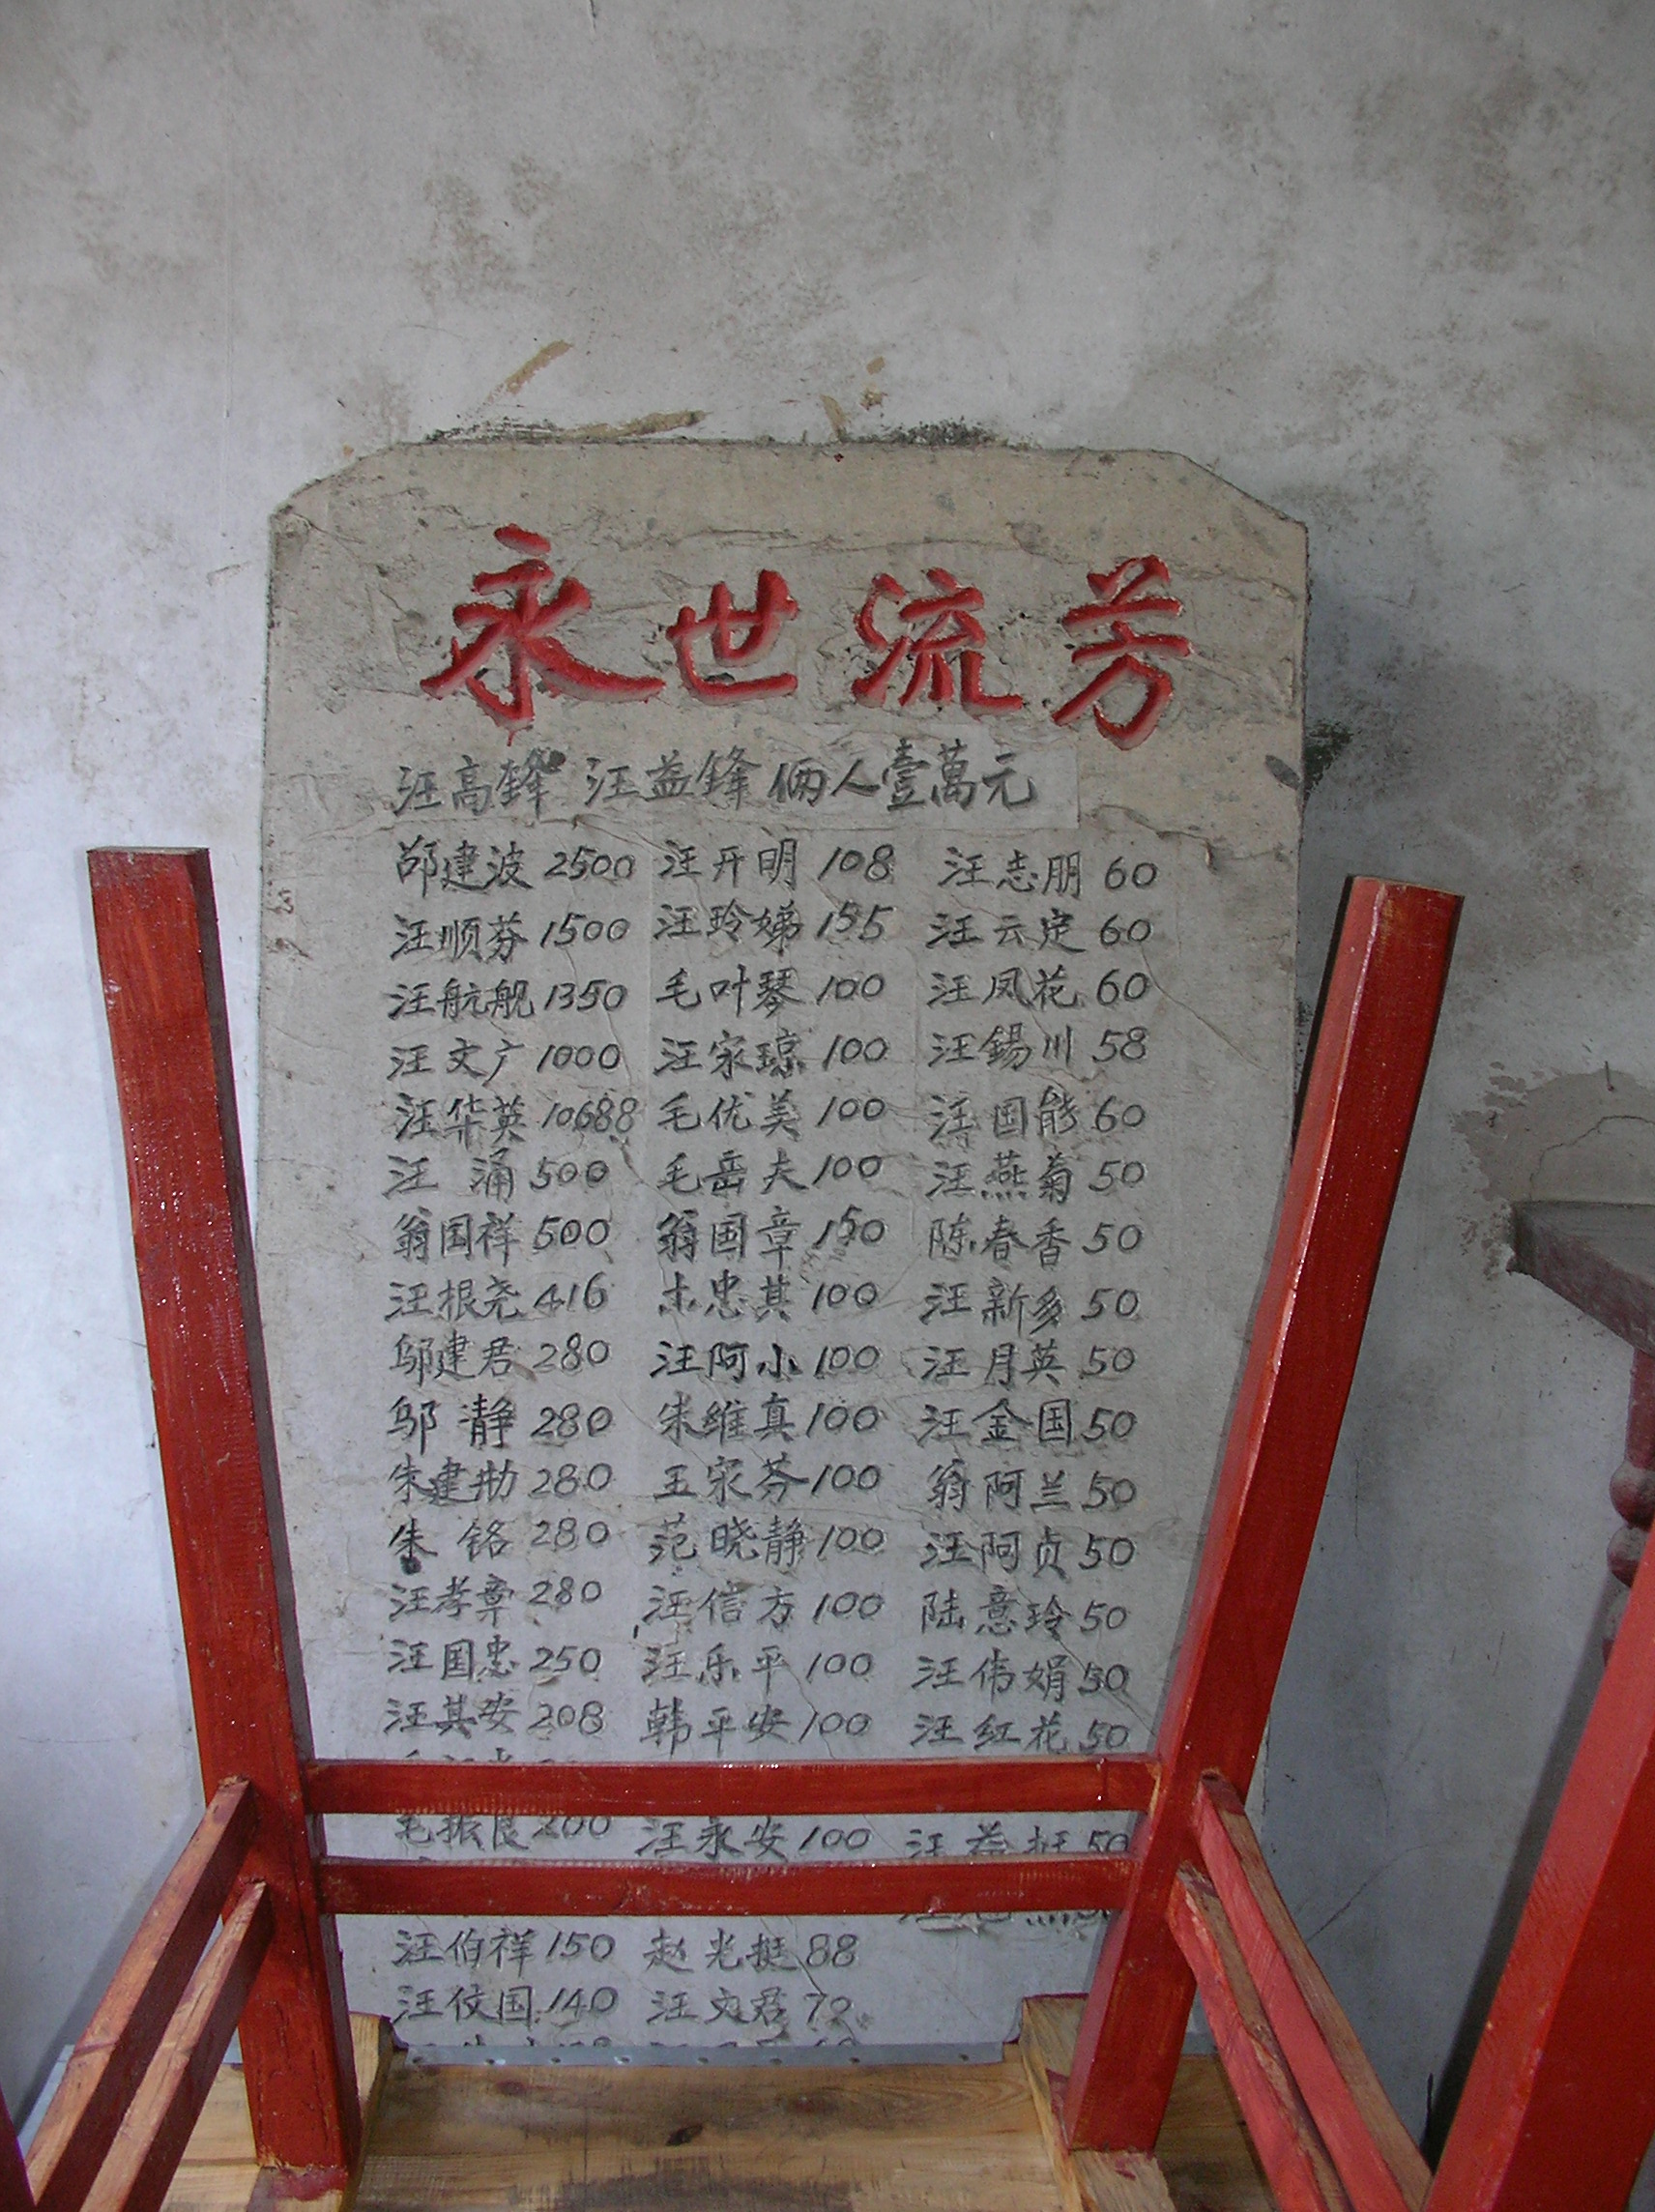 永世流芳
汪高锋 汪益锋 俩人壹萬元
邵建波 2500 汪开明 108 汪志朋 60
汪顺芬 1500 汪玲娣 155 汪云定 60
汪航舰 1350 毛叶琴 100 汪凤花 60
汪文广 1000 汪家琼 100 汪錫川 58
汪华英 10688 毛优美 100 汪国能 60
汪涌 500 毛岳夫 100 汪燕菊 50
翁国祥 500 翁国章 150 陈春香 50
汪根尧 416 忠其 100 汪新多 50
邬建君 280 汪阿小 100 汪月英 50
邬静 280 朱维真 100 汪金国 50
朱建勋 280 王家芬 100 翁阿兰 50
朱铭 280 范晓静 100 汪阿贞 50
汪孝章 280 汪信方 100 陆意玲 50
汪国忠 250 汪乐平 100 汪伟娟 50
汪其安 208 韩平安 100 汪红花 50
毛振良 200 汪永安 100 汪益挺 50
汪伯祥 150 赵光挺 88
汪仗国 140 汪文君 70